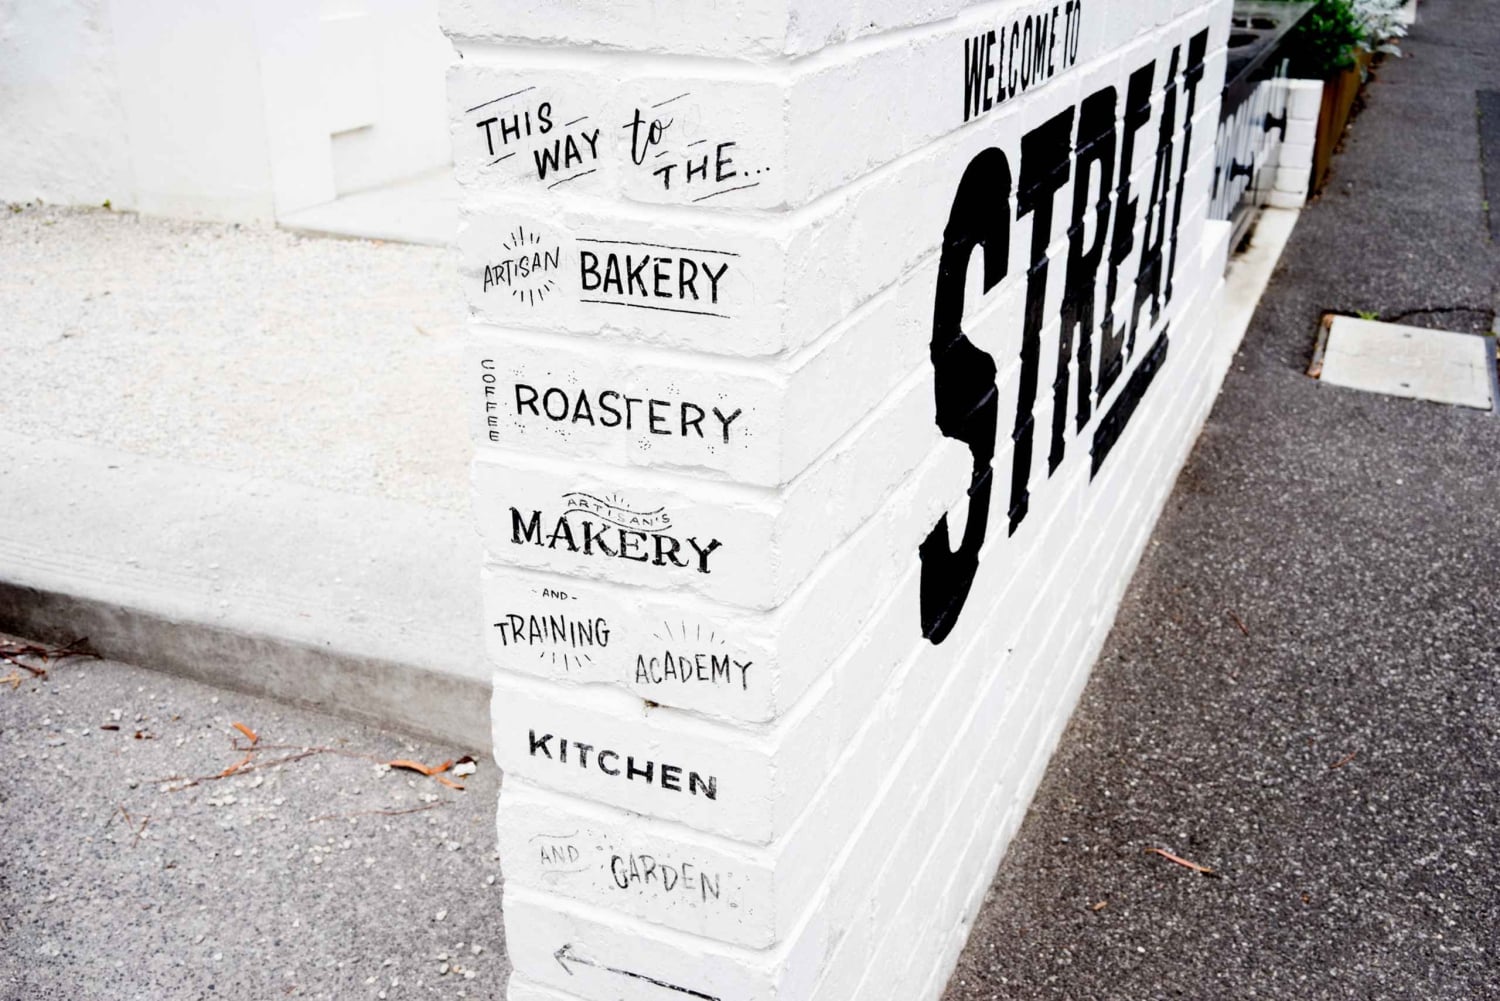 THIS WAY to THE...
ARTISAN BAKERY
COFFEE ROASTERY
ARTISAN'S
MAKERY
- AND -
TRAINING ACADEMY
KITCHEN
AND GARDEN
WELCOME TO
STREAT